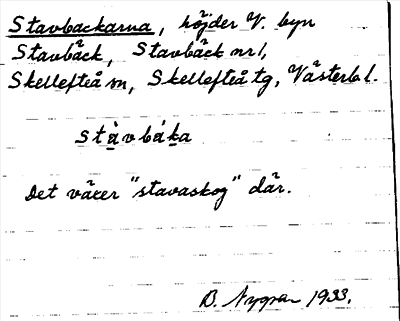 Stavbackarna, höjder V. byn
Stavbäck, Stavbäck nr 1,
Skellefteå sn, Skellefteå tg, Västerb. l.
stàvbáka
Det växer "stavaskog" där.
B. Nygren 1933.